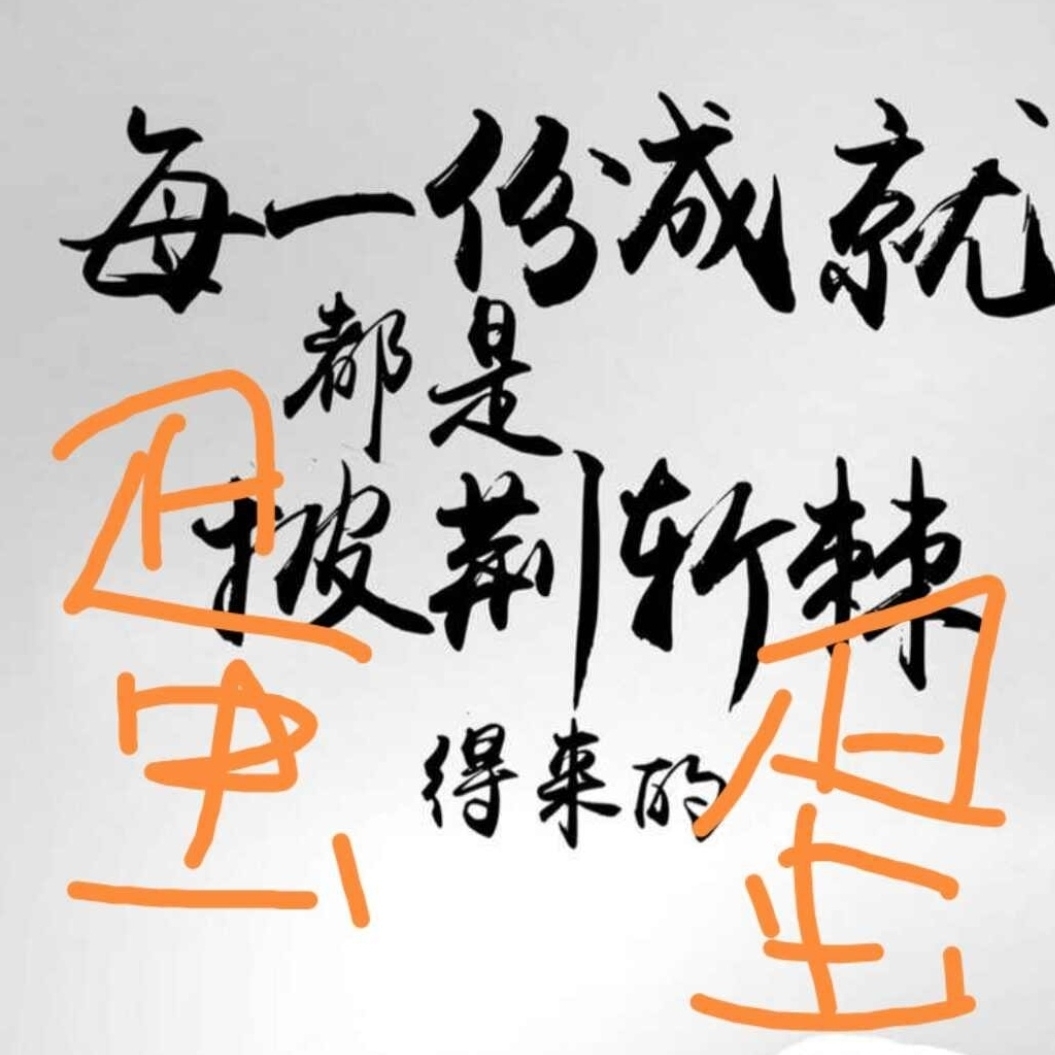 每一份成就
都是
披荆斩棘
得来的
蛋
蛋